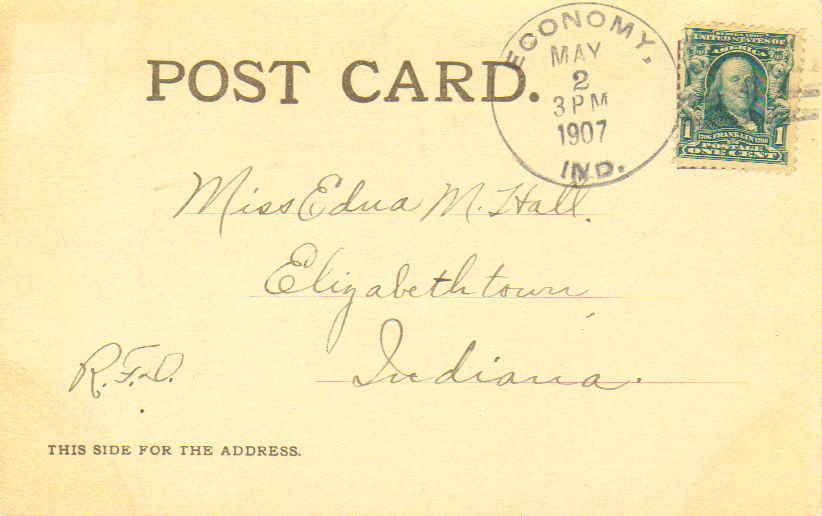 ECONOMY,
MAY
2
3 PM
1907
IND.
UNITED STATES OF
AMERICA
1 1706 FRANKLIN 1790 1
POSTAGE
ONE CENT
POST CARD.
Miss Edna M. Hall.
Elizabethtown,
Indiana.
R.F.D.
THIS SIDE FOR THE ADDRESS.